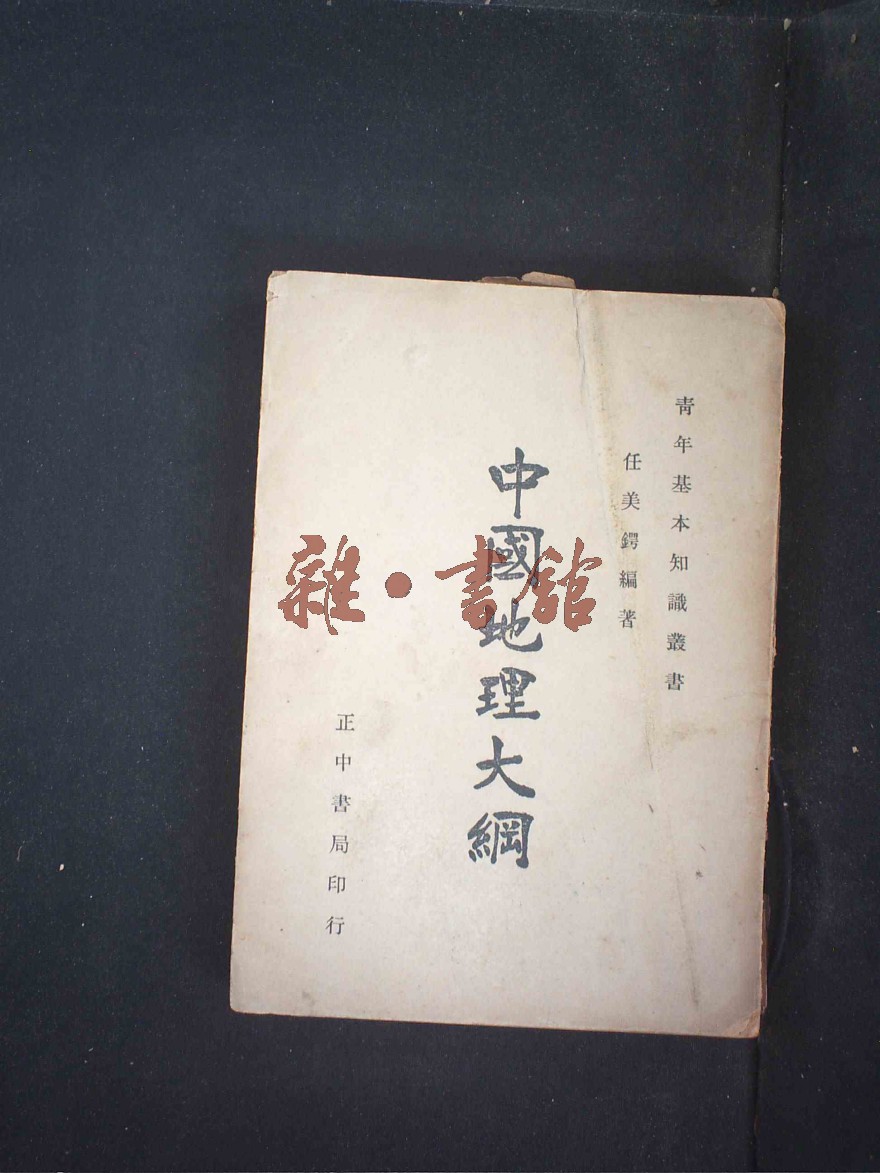 青年基本知識叢書
任美鍔編著
中國地理大綱
正中書局印行
雜·書館